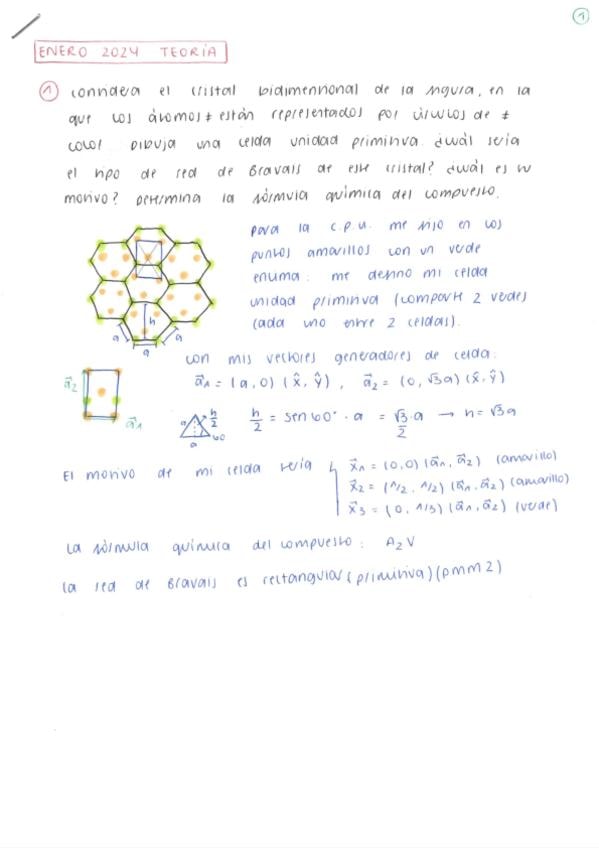 1
ENERO 2024 TEORÍA
1 Considera el cristal bidimensional de la figura, en la
que los átomos ≠ están representados por círculos de ≠
color. Dibuja una celda unidad primitiva. ¿cuál sería
el tipo de red de Bravais de este cristal? ¿cuál es su
motivo? Determina la fórmula química del compuesto.
para la c.p.u. me fijo en los
puntos amarillos con un verde
encima: me defino mi celda
unidad primitiva (comparte 2 verdes
cada uno entre 2 celdas).
h
a a a
con mis vectores generadores de celda:
a⃗1 = (a, 0) (x̂, ŷ) , a⃗2 = (0, √3a) (x̂, ŷ)
a⃗2
a⃗1
a h/2 60 a
h/2 = sen 60° · a = √3/2 · a → h = √3a
El motivo de mi celda sería
x⃗1 = (0,0) (a⃗1, a⃗2) (amarillo)
x⃗2 = (1/2, 1/2) (a⃗1, a⃗2) (amarillo)
x⃗3 = (0, 1/3) (a⃗1, a⃗2) (verde)
La fórmula química del compuesto: A2V
La red de Bravais es rectangular (primitiva) (pmm2)